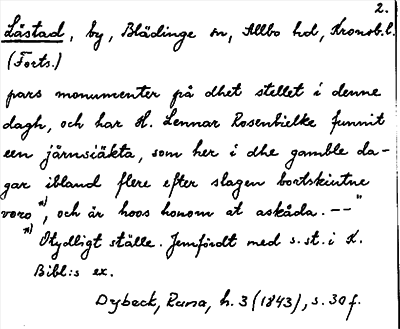 2.
Låstad, by, Blädinge sn, Allbo hd, Kronob. l.
(Forts.)
pars monumenter på dhet stellet i denne
dagh, och har H. Lennar Rosenbielke funnit
een järnsiäkta, som her i dhe gamble da-
gar ibland flere efter slagen bortskiutne
voro x), och är hoos honom at askåda. -- "
x) Otydligt ställe. Jemfördt med s. st. i K.
Bibl:s ex.
Dybeck, Runa, h. 3 (1843), s. 30 f.